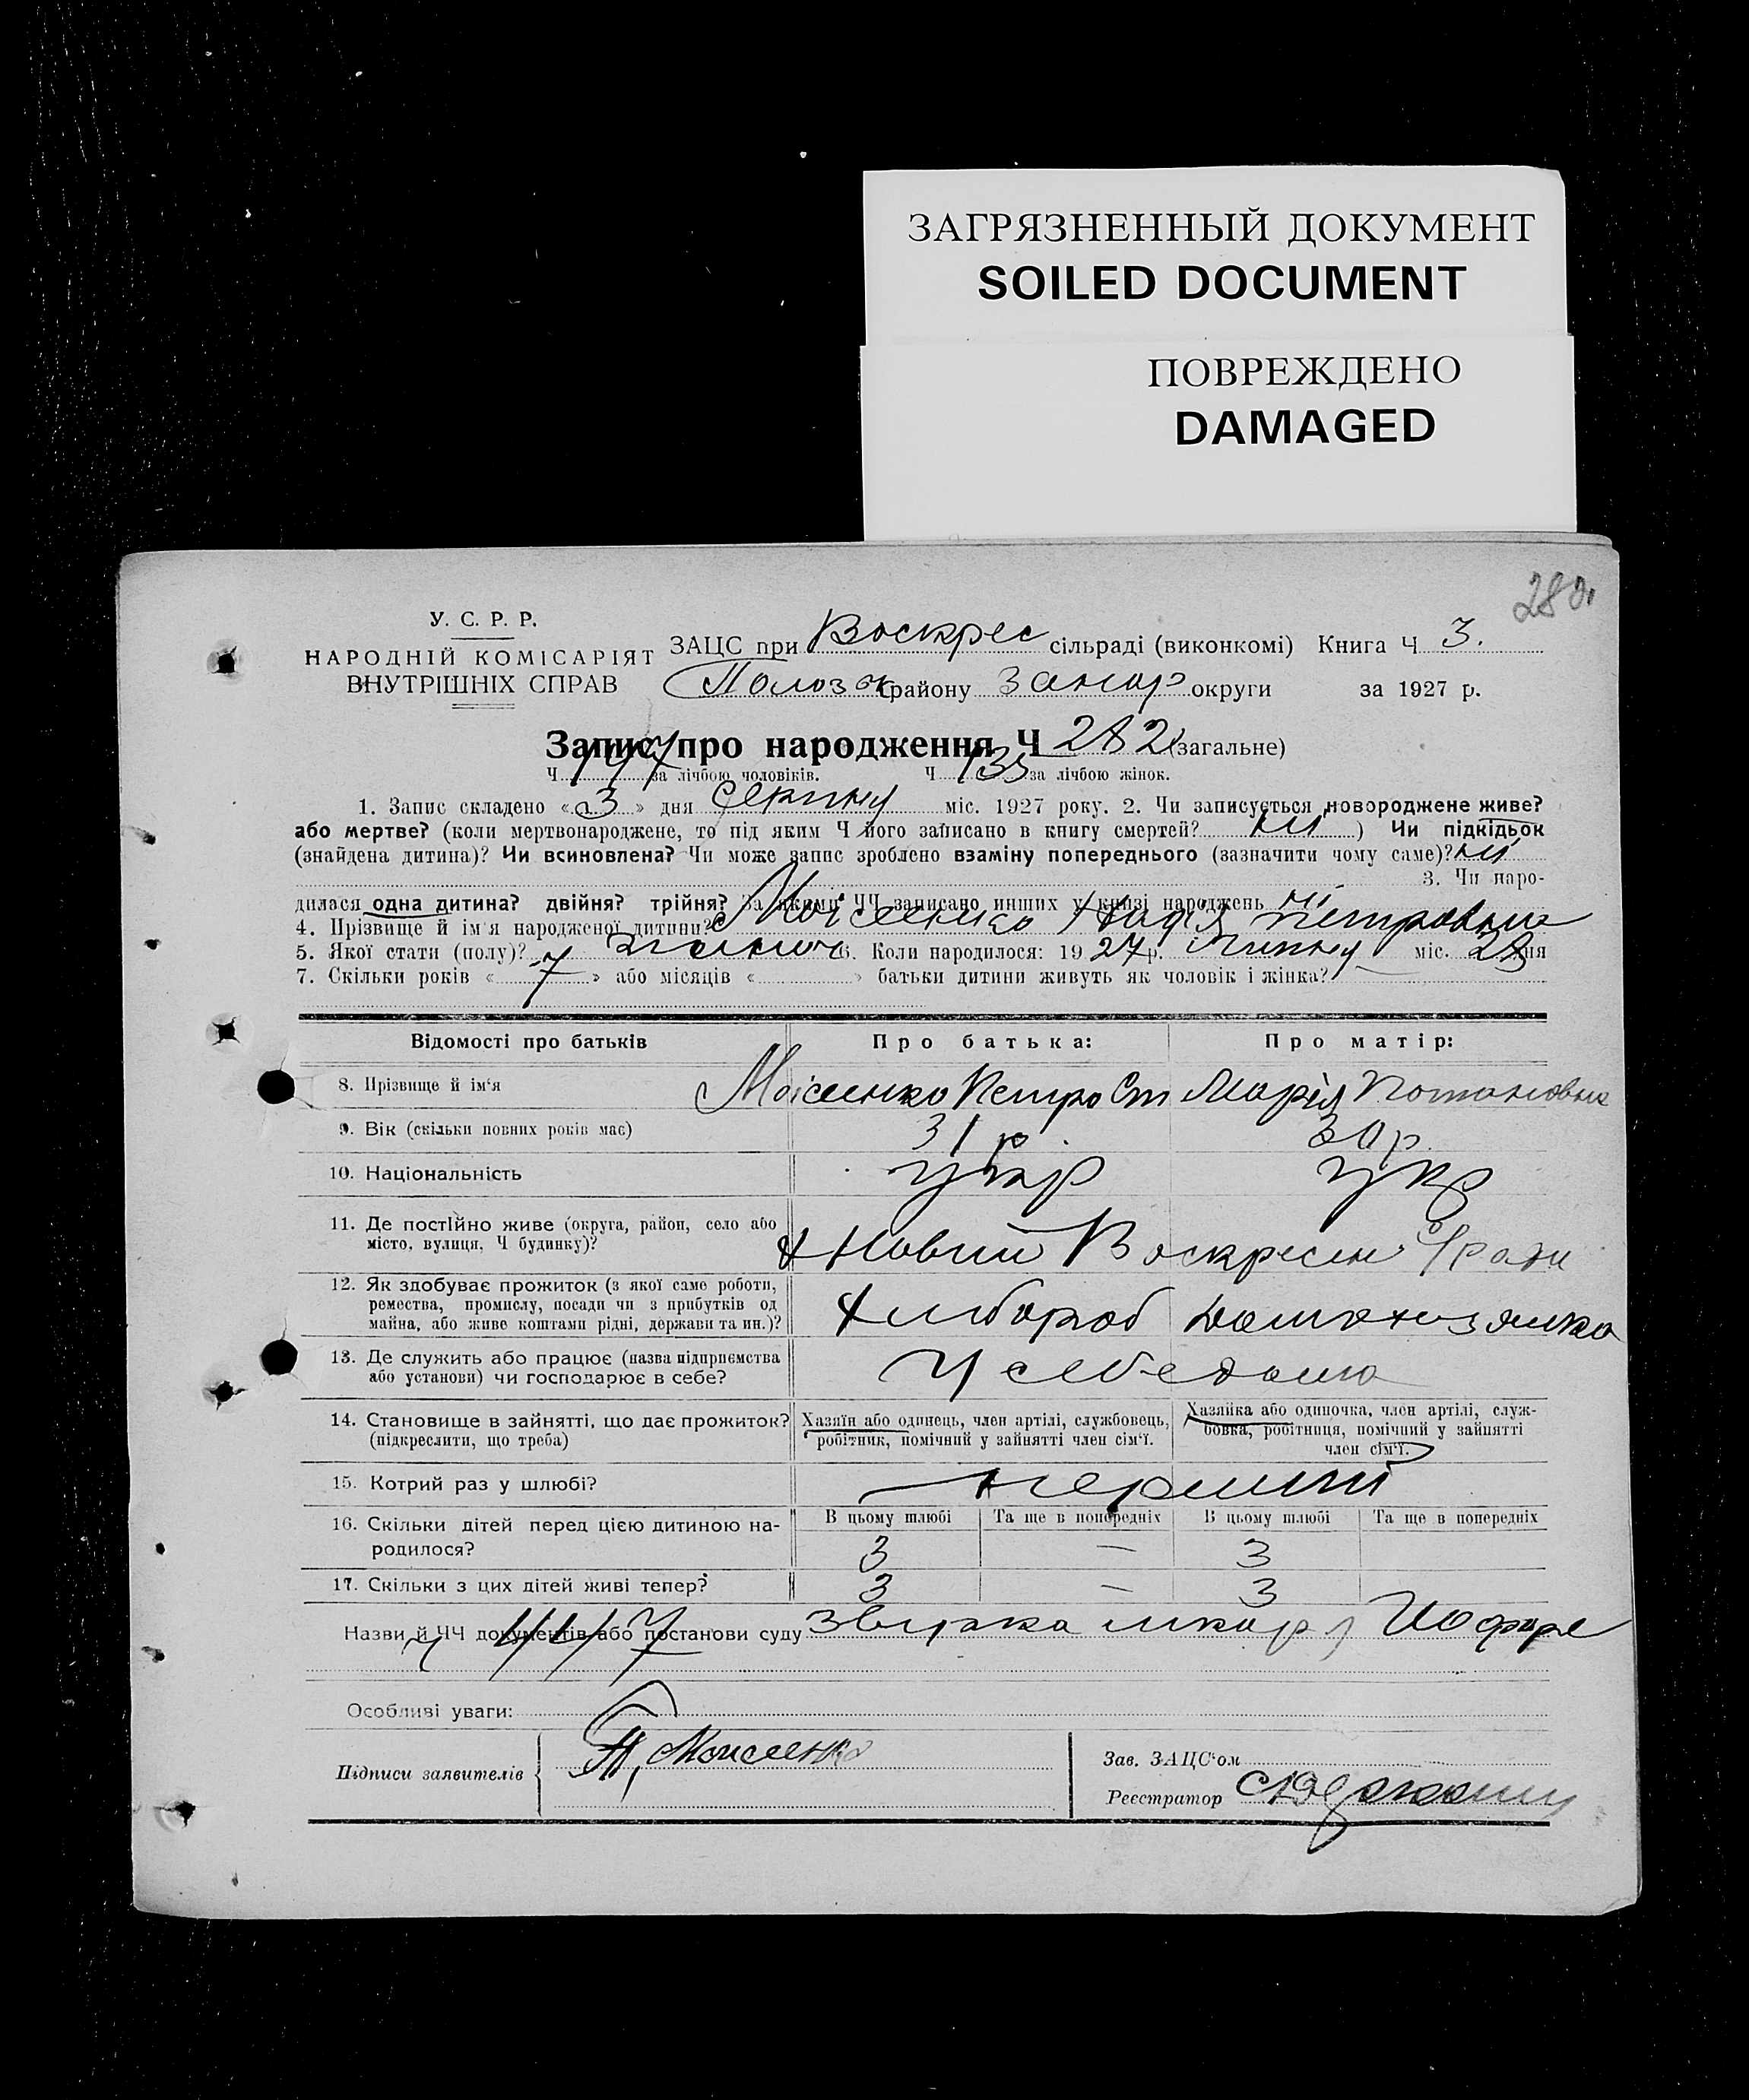 ЗАГРЯЗНЕННЫЙ ДОКУМЕНТ
SOILED DOCUMENT
ПОВРЕЖДЕНО
DAMAGED
280
У. С. Р. Р.
НАРОДНІЙ КОМІСАРІЯТ
ВНУТРІШНІХ СПРАВ
ЗАЦС при Воскрес сільраді (виконкомі) Книга Ч 3.
Полозок району Запор округи за 1927 р.
Запис про народження Ч 282 (загальне)
Ч 147 за лічбою чоловіків. Ч 135 за лічбою жінок.
1. Запис складено « 3 » дня серпня міс. 1927 року. 2. Чи записується новороджене живе?
або мертве? (коли мертвонароджене, то під яким Ч його записано в книгу смертей? ні ) Чи підкідьок
(знайдена дитина)? Чи всиновлена? Чи може запис зроблено взаміну попереднього (зазначити чому саме)? ні
3. Чи наро-
дилася одна дитина? двійня? трійня? За якими ЧЧ записано инших у книзі народжень ні
4. Прізвище й ім'я народженої дитини? Моісеенко Надія Петровна
5. Якої стати (полу)? жіноч 6. Коли народилося: 1927 р. липня міс. 28 дня
7. Скільки років « 7 » або місяців « » батьки дитини живуть як чоловік і жінка?
Відомості про батьків Про батька: Про матір:
8. Прізвище й ім'я Моісеенко Петро Ст Марія Потаповна
9. Вік (скільки повних років має) 31 р. 30 р.
10. Національність укр укр
11. Де постійно живе (округа, район, село або
місто, вулиця, Ч будинку)? Новий Воскресен
12. Як здобуває прожиток (з якої саме роботи,
ремества, промислу, посади чи з прибутків од
майна, або живе коштами рідні, держави та ин.)? хлібороб домохозяйка
13. Де служить або працює (назва підприємства
або установи) чи господарює в себе? У себе дома
14. Становище в зайнятті, що дає прожиток?
(підкреслити, що треба)
Хазяїн або одинець, член артілі, службовець,
робітник, помічний у зайнятті член сім'ї.
Хазяйка або одиночка, член артілі, служ-
бовка, робітниця, помічний у зайнятті
член сім'ї.
15. Котрий раз у шлюбі? перший
В цьому шлюбі Та ще в попередніх В цьому шлюбі Та ще в попередніх
16. Скільки дітей перед цією дитиною на-
родилося? 3 — 3
17. Скільки з цих дітей живі тепер? 3 — 3
Назви й ЧЧ документів або постанови суду
Особливі уваги:
Підписи заявителів П. Моисеенко
Зав. ЗАЦС'ом
Реєстратор